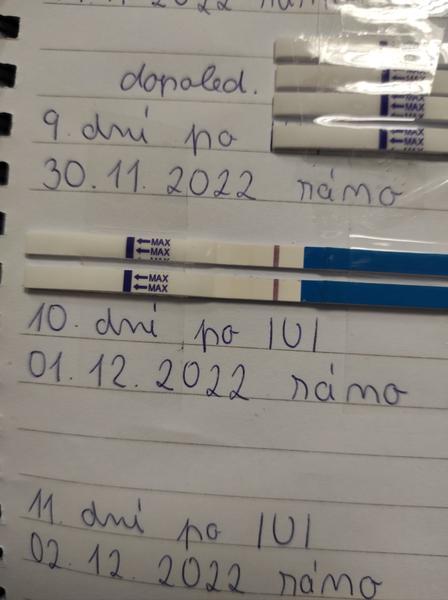 11. 2022 ráno
dopoled.
9. dni po
30. 11. 2022 ráno
MAX
MAX
MAX
MAX
MAX
MAX
10. dni po IUI
01. 12. 2022 ráno
11. dni po IUI
02. 12. 2022 ráno